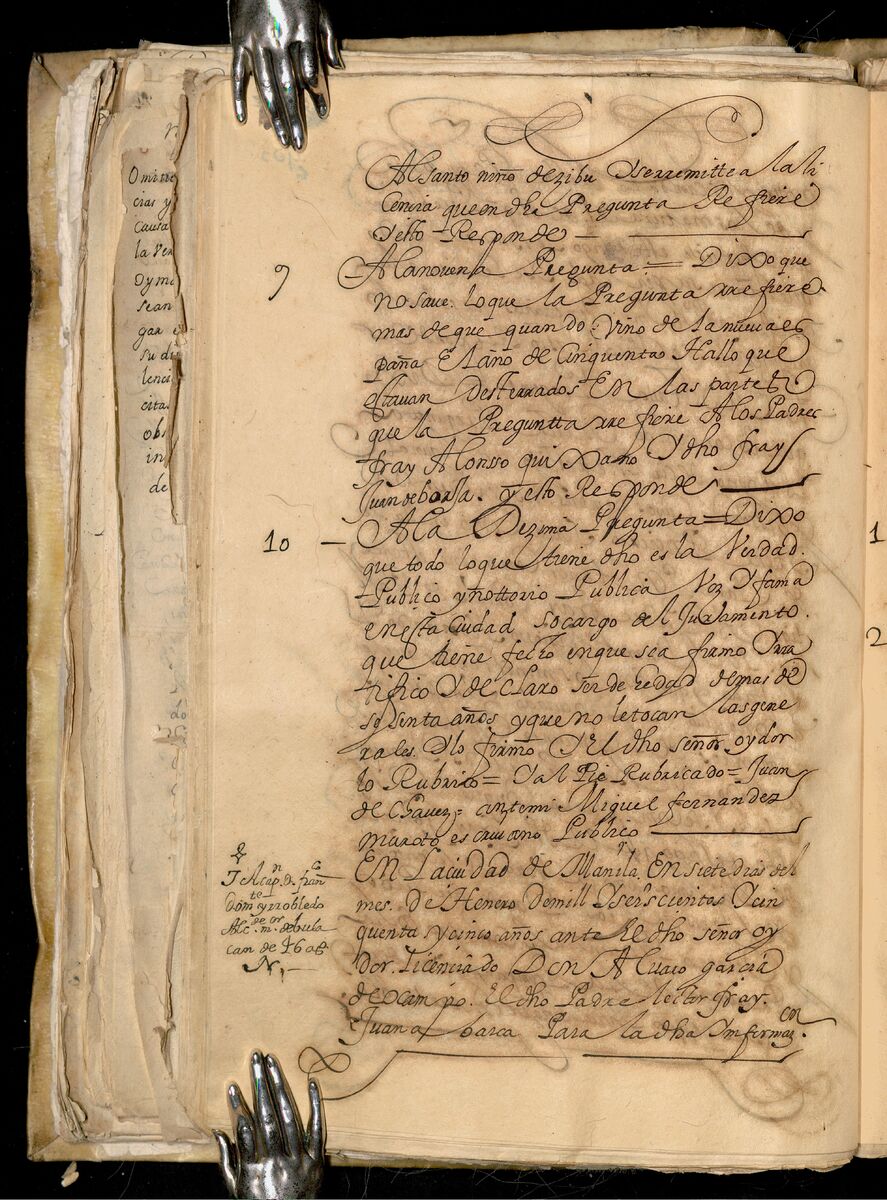 Omitte
cias y
Causa
la Ver
Dyma
sean
gar e
su di
lenci
cita
obs
in
de
Al santo niño de zibu Yserremitte a la li
cencia que en dha Pregunta Refiere
Yesto Responde
9
A la novena Pregunta = Dixo que
no save lo que la Pregunta rrefiere
mas de que quando vino de la nueva es
paña El año de Cinquenta Hallo que
estavan Desterrados En las partes
que la Preguntta rrefiere A los Padres
fray Alonsso quixano Ydho fray
Juan de borja. yesto Responde
10
A la Dezima Pregunta = Dixo
que todo lo que tiene dho es la Verdad.
Publico ynottorio Publica Voz Yfama
en esta Ciudad so cargo del Juramento
que tiene fecho en que se a firmo Yrra
tifico Yde claro ser de hedad de mas de
sesenta años y que no le tocan las gene
rales. Ylo firmo Y El dho señor oydor
lo Rubrico = Yal Pie Rubricado = Juan
de Chavez = antemi Miguel fernandez
maroto escrivano Publico
En la ciudad de Manila. En siete dias del
mes. De Henero de mill Yseiscientos Ycin
quenta y cinco años ante El dho señor oy
dor. Licenciado Don Alvaro garcia
de ocampo. El dho Padre lector fray.
Juan abarca Para la dha Informaon.
Tº el cap.n D. fran.co
dom.te y rrobledo
Alc.de m.or de bula
can de 46 as
N,
1
2